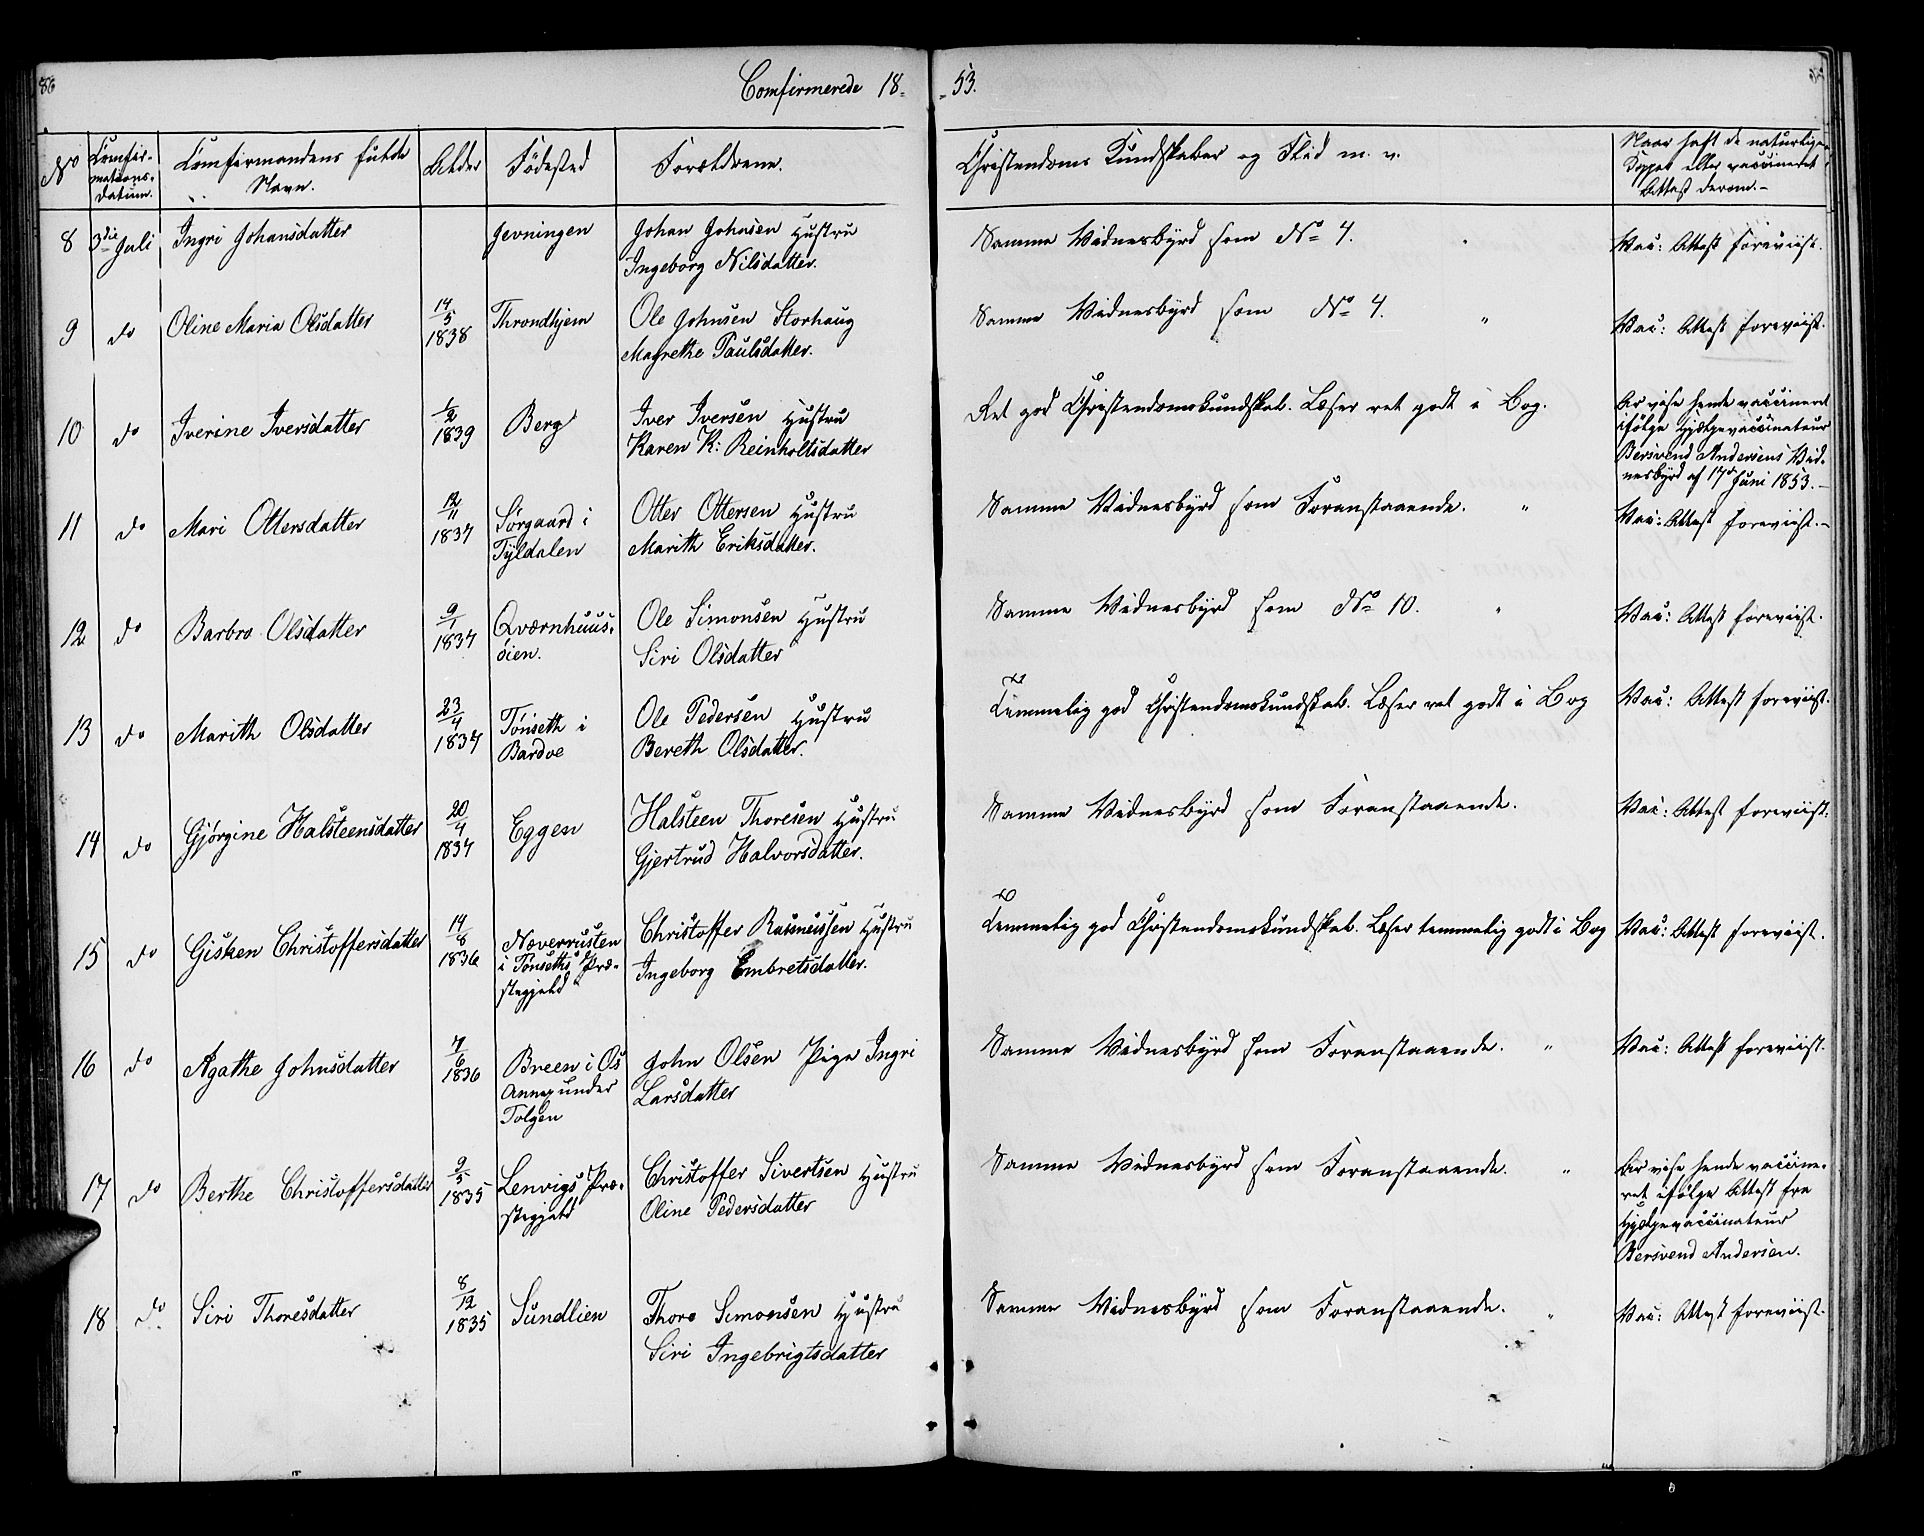 86
Comfirmerede 18-
-53.
No
Comfir-
mations-
datum.
Comfirmandens fulde
Navn.
Alder
Fødested
Forældrene.
Christendoms Kundskaber og Flid m. v.
Naar haft de naturlige
Kopper eller vaccineret
Attest derom.-
8 3die Juli Ingri Johansdatter Jevningen Johan Johnsen Hustru Samme Vidnesbyrd som No 4. Vac: Attest foreviist.
Ingeborg Nilsdatter.
9 do Oline Maria Olsdatter 14/5 1838 Throndhjem Ole Johnsen Storhaug Samme Vidnesbyrd som No 4. " Vac: Attest foreviist.
Magrethe Paulsdatter.
10 do Iverine Iversdatter 1/2 1839 Berg Iver Iversen Hustru Ret god Christendomskundskab. Læser ret godt i Bog.
Karen K: Reinholtsdatter
vise hende vaccineret
ifølge Hjælpevaccinateur
Bersvend Andersens Vid-
nesbyrd af 17de Juni 1853.-
11 do Mari Ottersdatter 12/11 1837 Sørgaard i Otter Ottersen Hustru Samme Vidnesbyrd som Foranstaaende. " Vac: Attest foreviist.-
Tyldalen Marith Eriksdatter.
12 do Barbro Olsdatter 9/1 1837 Qværnhuus- Ole Simonsen Hustru Samme Vidnesbyrd som No 10. " Vac: Attest foreviist.
øien. Siri Olsdatter
13 do Marith Olsdatter 23/4 1837 Tönseth i Ole Pedersen Hustru Temmelig god Christendomskundskab. Læser ret godt i Bog Vac: Attest foreviist.
Bardoe Bereth Olsdatter.
14 do Gjørgine Halsteensdatter 20/4 1837 Eggen Halsteen Thoresen Hustru Samme Vidnesbyrd som Foranstaaende. Vac: Attest foreviist.
Gjertrud Halvorsdatter.
15 do Gisken Christoffersdatter 14/8 1836 Noverrusten Christoffer Rasmussen Hustru Temmelig god Christendomskundskab. Læser temmelig godt i Bog Vac: Attest foreviist.
i Tönseths Præ- Ingeborg Embretsdatter.
stegjeld
16 do Agathe Johnsdatter 7/6 1836 Breen i Os John Olsen Pige Ingri Samme Vidnesbyrd som Foranstaaende. " Vac: Attest foreviist.
Annex under Larsdatter
Tolgen
17 do Berthe Christoffersdatter 9/5 1835 Lenvigs Præ- Christoffer Sivertsen Hustru Samme Vidnesbyrd som Foranstaaende. "
stegjeld Oline Pedersdatter
vise hende vaccine-
ret ifølge Attest fra
Hjælpevaccinateur
Bersvend Andersen.
18 do. Siri Thoresdatter 8/12 1835 Sundlien Thore Simonsen Hustru Samme Vidnesbyrd som Foranstaaende. " Vac: Attest foreviist.
Siri Ingebrigtsdatter